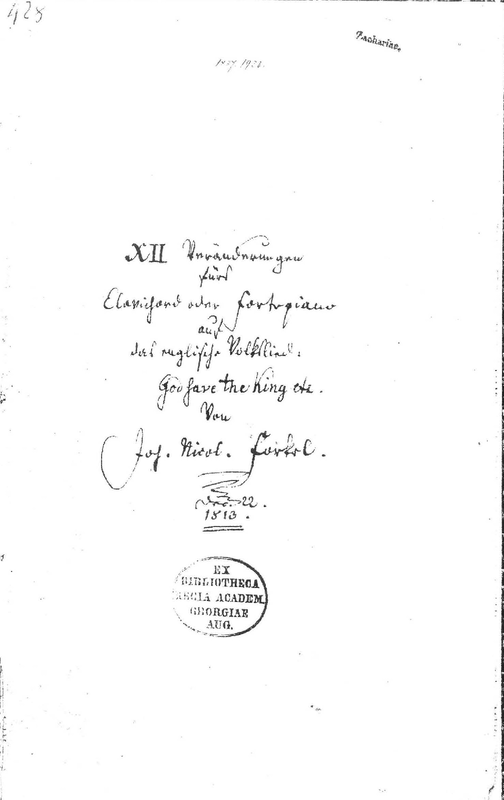 428
Zachariae.
XII Veränderungen
fürs
Clavichord oder Fortepiano
auf
das englische Volkslied:
God save the King etc.
Von
Joh. Nicol. Forkel.
Dec. 22.
1813.
EX
BIBLIOTHECA
REGIA ACADEM.
GEORGIAE
AUG.